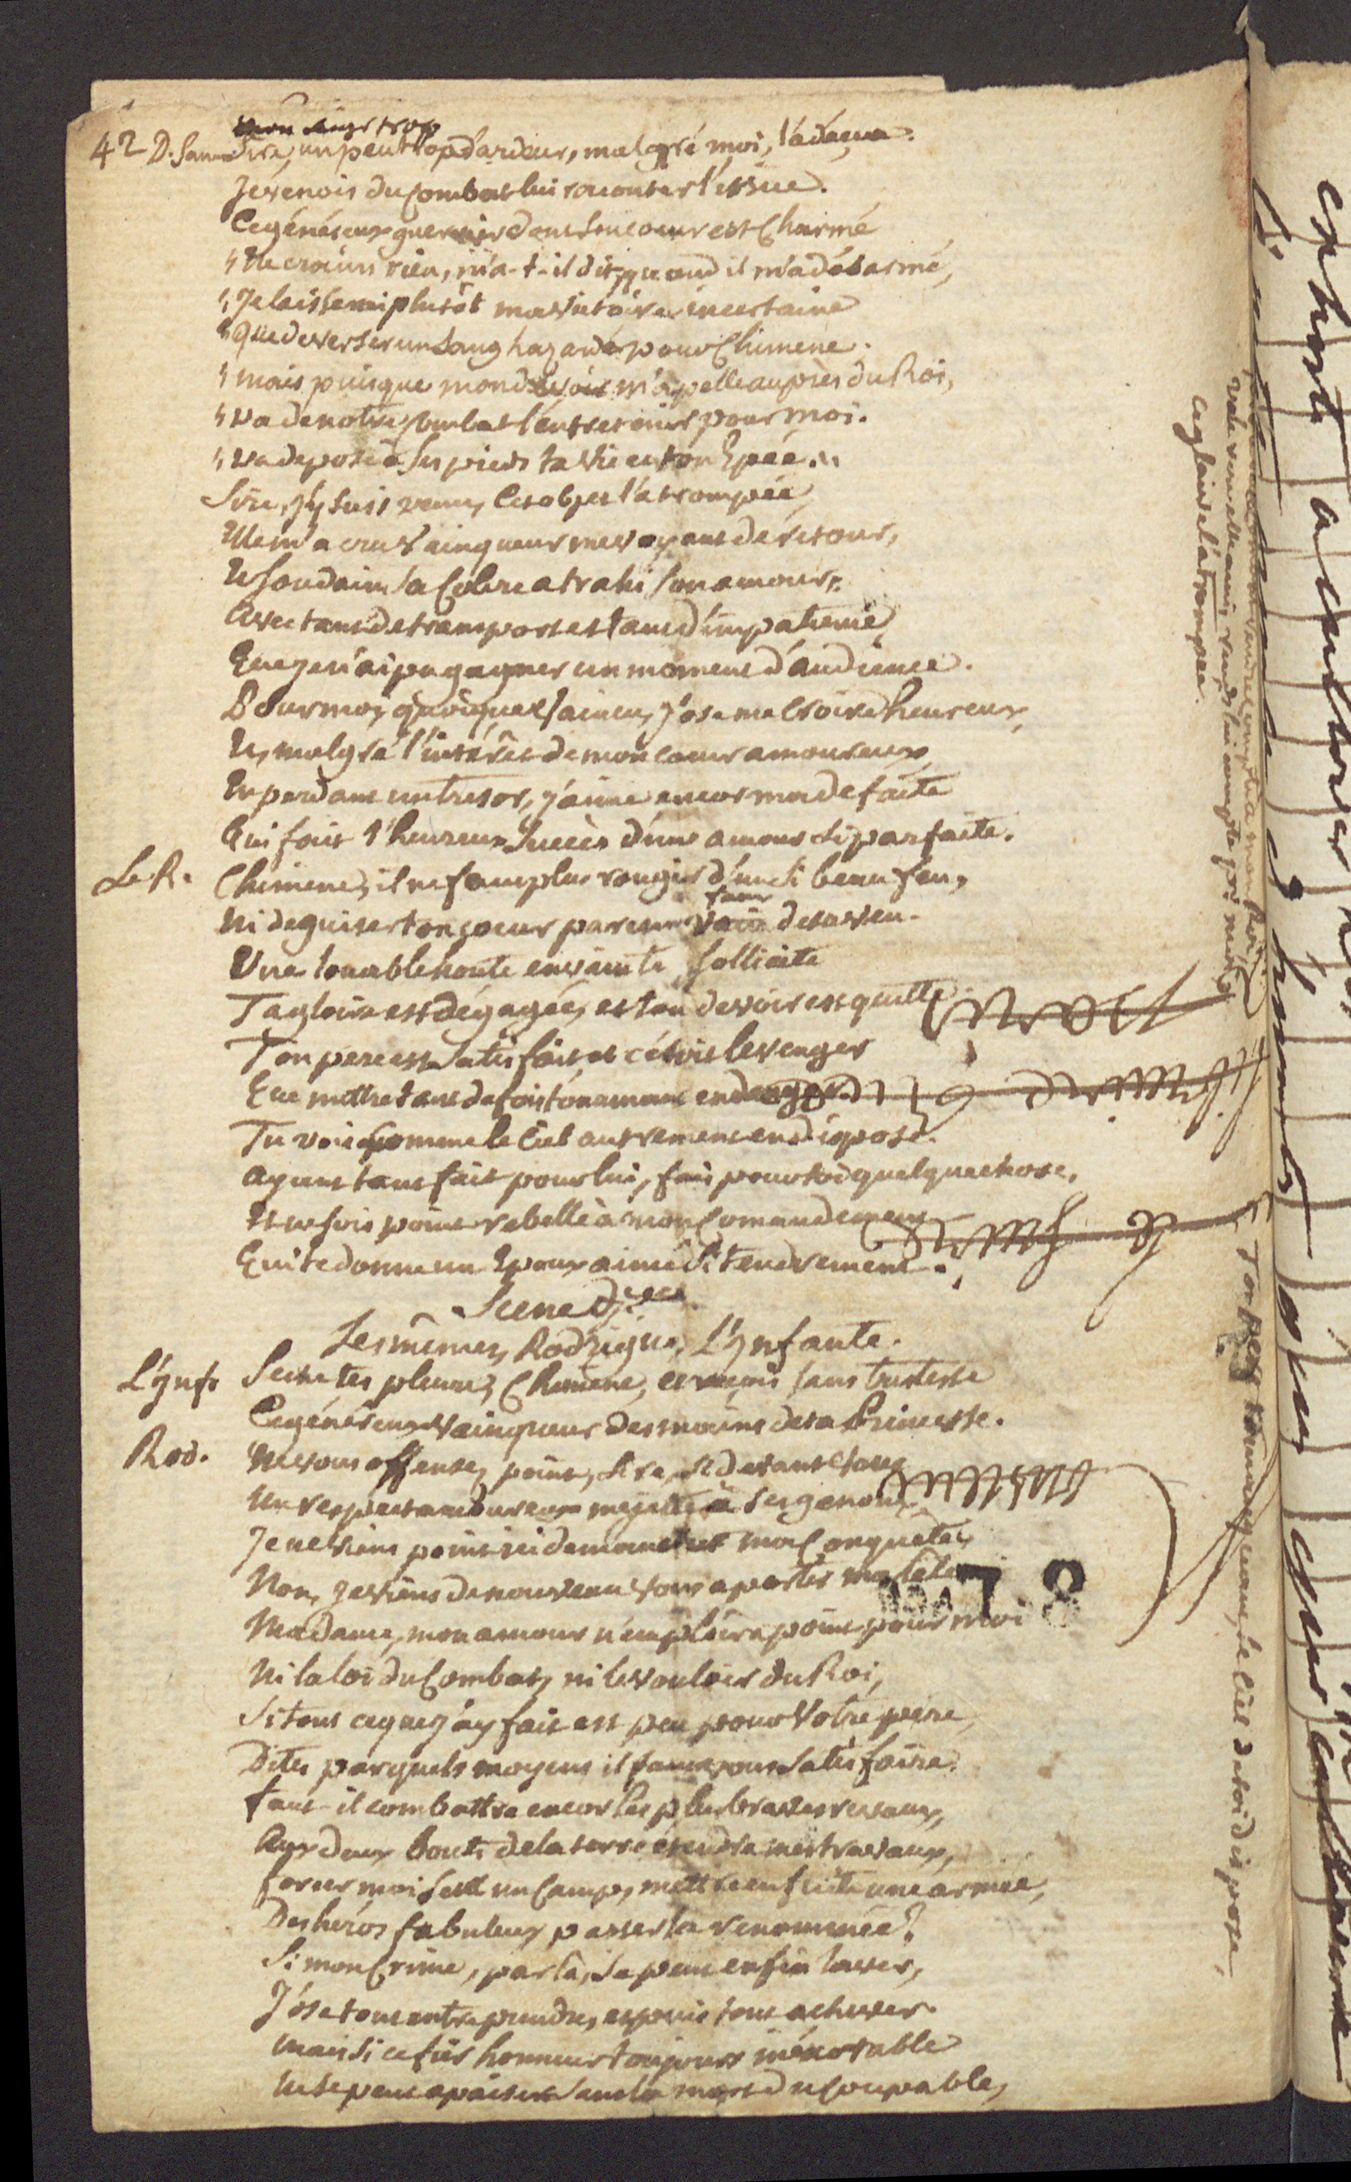 mon ange trop
42 D. San. Sire, un peu trop d'ardeur, malgré moi, l'a déçue.
Je venois du Combat lui raconter l'issue.
Ce généreux guerrier dont son cœur est Charmé
" Ne crains rien, m'a-t-il dit, quand il m'a désarmé,
" Je laisserai plutôt ma victoire incertaine
" Que de verser un sang hazardé pour Chimene.
" mais puisque mon devoir m'apelle auprès du Roi,
" va de notre combat l'entretenir pour moi.
" va deposer à ses pieds ta vie et ton Epée. "
Sire, j'y suis venu, cet objet l'a trompée,
Elle m'a cru Vainqueur me voyant de retour,
Et soudain sa Colere a trahi son amour,
Avec tant de transport et tant d'impatience,
Que je n'ai pu gagner un moment d'audience.
Pour moi, quoique Vaincu, j'ose me croire heureux,
Et, malgré l'intérêt de mon cœur amoureux,
En perdant un tresor, j'aime encor ma defaite
Qui fait l'heureux Succès d'une amour si parfaite.
Le R. Chimene, il ne faut plus rougir d'un si beau feu,
faux
Ni deguiser ton cœur par un vain desaveu.
Une louable honte en vain te sollicite
Ta gloire est dégagée, et ton devoir est quitte.
Ton pere est satisfait, et c'étoit le venger
Que mettre tant de fois ton amant en danger.
Tu vois comme le Ciel autrement en dispose.
ayant tant fait pour lui, fais pour toi quelque chose,
Et ne sois point rebelle à mon Comandement
Qui te donne un Epoux aimé si tendrement.
Scene d.ere
Les mêmes, Rodrigue, L'Ynfante.
L'ynf. Seche tes pleurs, Chimene, et reçois sans tristesse
Ce généreux vainqueur des mains de ta Princesse.
Rod. Ne vous offensez point, Sire, si devant vous
Un respect amoureux me jette à ses genoux.
Je ne viens point ici demander ma Conquête,
Non, je viens de nouveau vous aporter ma tête
Madame, mon amour n'emploira point pour moi
Ni la loi du Combat, ni le vouloir du Roi,
Si tout ce que j'ay fait est peu pour Votre pere,
Dites par quels moyens il faut vous satisfaire.
faut-il combattre encor les plus braves rivaux,
Aux deux bouts de la terre étendre mes travaux,
forcer moi seul un Camp, mettre en fuite une armée,
Des héros fabuleux passer la renommée?
Si mon Crime, par là, se peut enfin laver,
J'ose tout entreprendre, et puis tout achever.
mais si ce fier honneur toujours inéxorable
Ne se peut apaiser sans la mort du Coupable,
rends lui compte
ce glaive l'a trompée.
Ton pere le ciel de toi dispose,
7.8